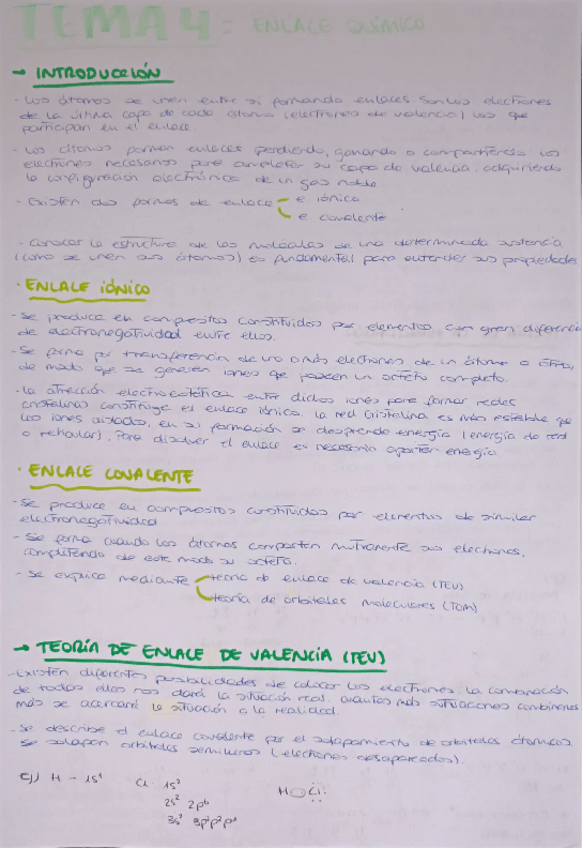 TEMA 4: ENLACE QUÍMICO
→ INTRODUCCIÓN
- Los átomos se unen entre sí formando enlaces. Son los electrones
de la última capa de cada átomo (electrones de valencia) los que
participan en el enlace.
- Los átomos forman enlaces perdiendo, ganando o compartiendo los
electrones necesarios para completar su capa de valencia, adquiriendo
la configuración electrónica de un gas noble.
- Existen dos formas de enlace e. iónico
e. covalente
- Conocer la estructura de las moléculas de una determinada sustancia
(como se unen sus átomos) es fundamental para entender sus propiedades
· ENLACE IÓNICO
- Se produce en compuestos constituidos por elementos con gran diferencia
de electronegatividad entre ellos.
- Se forma por transferencia de uno o más electrones de un átomo a otro,
de modo que se generen iones que poseen un octeto completo.
- La atracción electrostática entre dichos iones para formar redes
cristalinas constituye el enlace iónico. La red cristalina es más estable que
los iones aislados, en su formación se desprende energía (energía de red
o reticular). Para disolver el enlace es necesario aportar energía.
· ENLACE COVALENTE
- Se produce en compuestos constituidos por elementos de similar
electronegatividad
- Se forma cuando los átomos comparten mutuamente sus electrones,
completando de este modo su octeto.
- Se explica mediante teoría de enlace de valencia (TEV)
teoría de orbitales moleculares (TOM)
→ TEORÍA DE ENLACE DE VALENCIA (TEV)
- Existen diferentes posibilidades de colocar los electrones. La combinación
de todas ellas nos dará la situación real. Cuantas más situaciones combinemos
más se acercará la situación a la realidad.
- Se describe el enlace covalente por el solapamiento de orbitales atómicos.
Se solapan orbitales semillenos (electrones desapareados).
Ej) H - 1s¹ Cl 1s² H Cl
2s² 2p⁶
3s² 3p²p²p¹